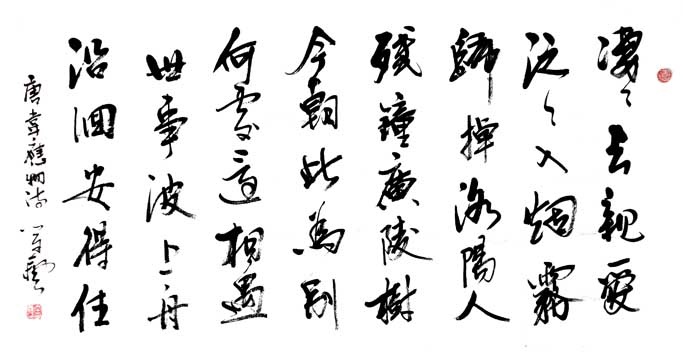 凄々去親愛
泛々入烟霧
歸棹洛陽人
殘鐘廣陵樹
今朝此為別
何處還相遇
世事波上舟
沿洄安得住
唐韋應物詩